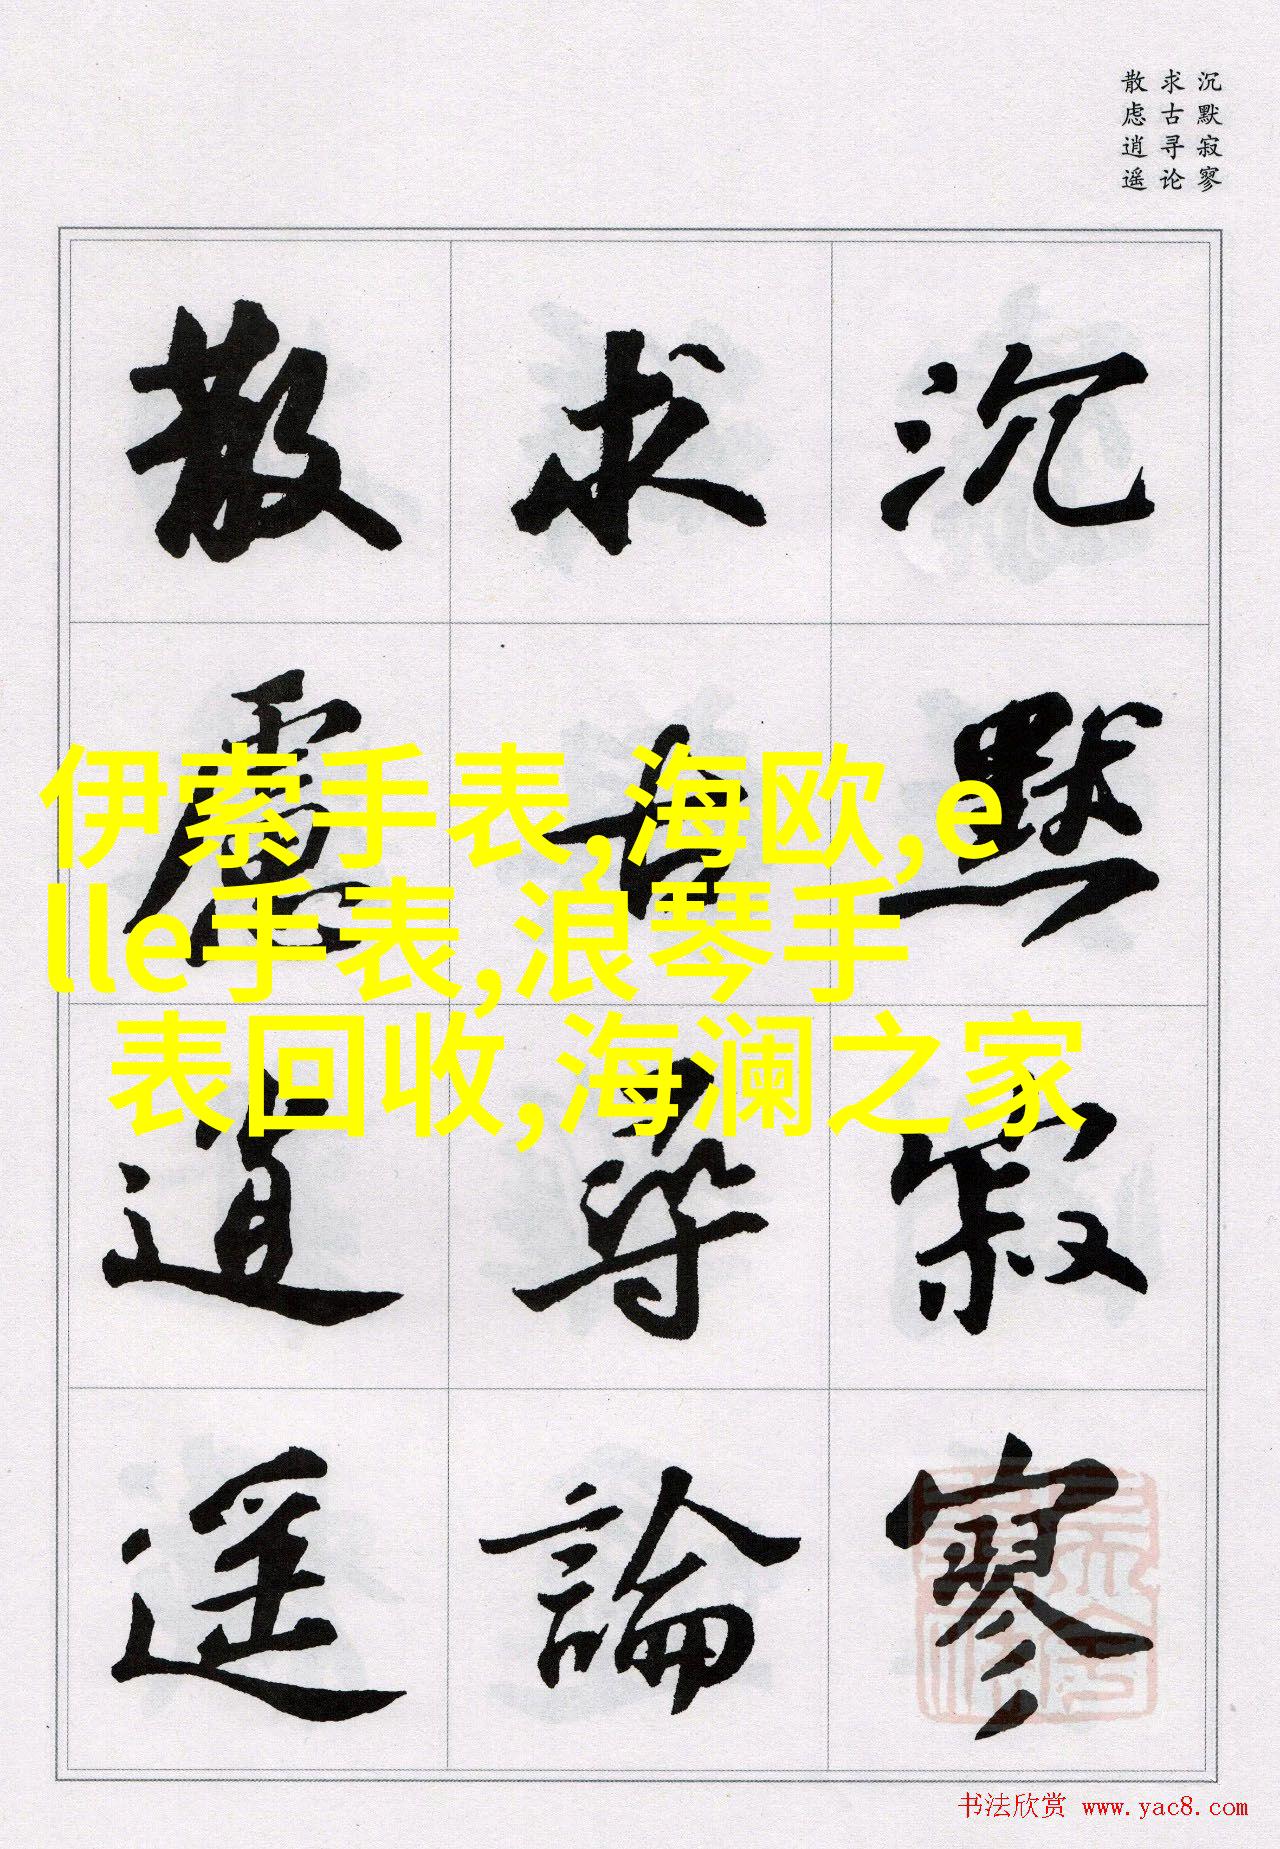 沉默寂寥
求古寻论
散虑逍遥
沉默寂寥
求古尋論
散慮逍遥
伊索手表,海欧,e
lle手表,浪琴手
表回收,海澜之家
书法欣赏 www.yac8.com